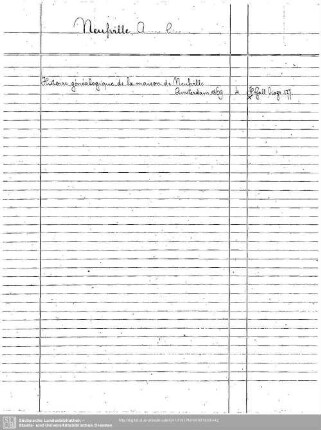 Neufville, A.... C...
Histoire généalogique de la maison de Neufville
Amsterdam 1869 4
Sächsische Landesbibliothek -
Staats- und Universitätsbibliothek Dresden